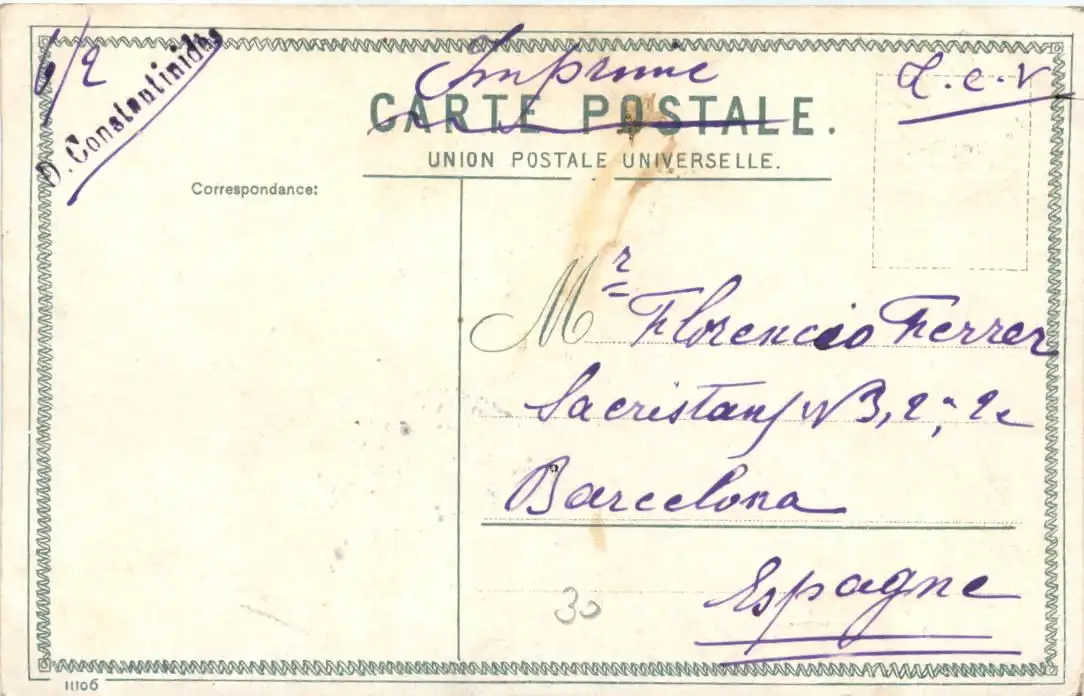 D. Constantinides
Imprimé
T.c.V
CARTE POSTALE.
UNION POSTALE UNIVERSELLE.
Correspondance:
Mr Florencio Ferrer
Sacristans N 3, 2ª, 2ª
Barcelona
Espagne
30
11106